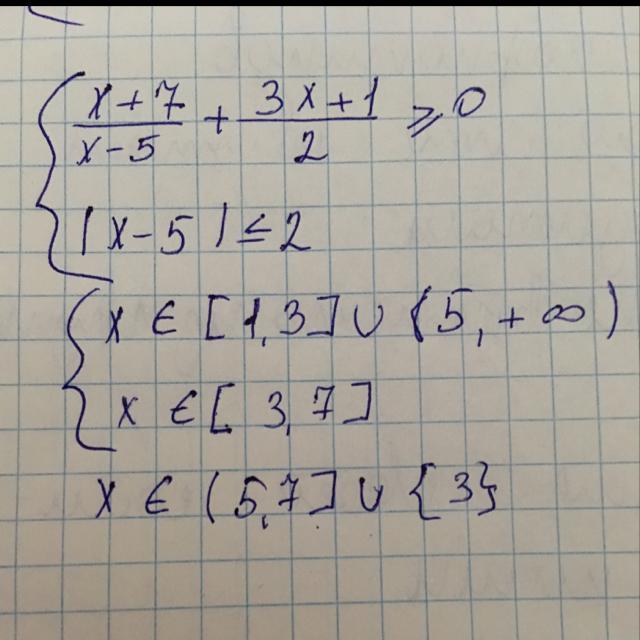 x+7/x-5 + 3x+1/2 ⩾ 0
|x-5| ≤ 2
x ∈ [1,3] ∪ (5,+∞)
x ∈ [3,7]
x ∈ (5,7] ∪ {3}